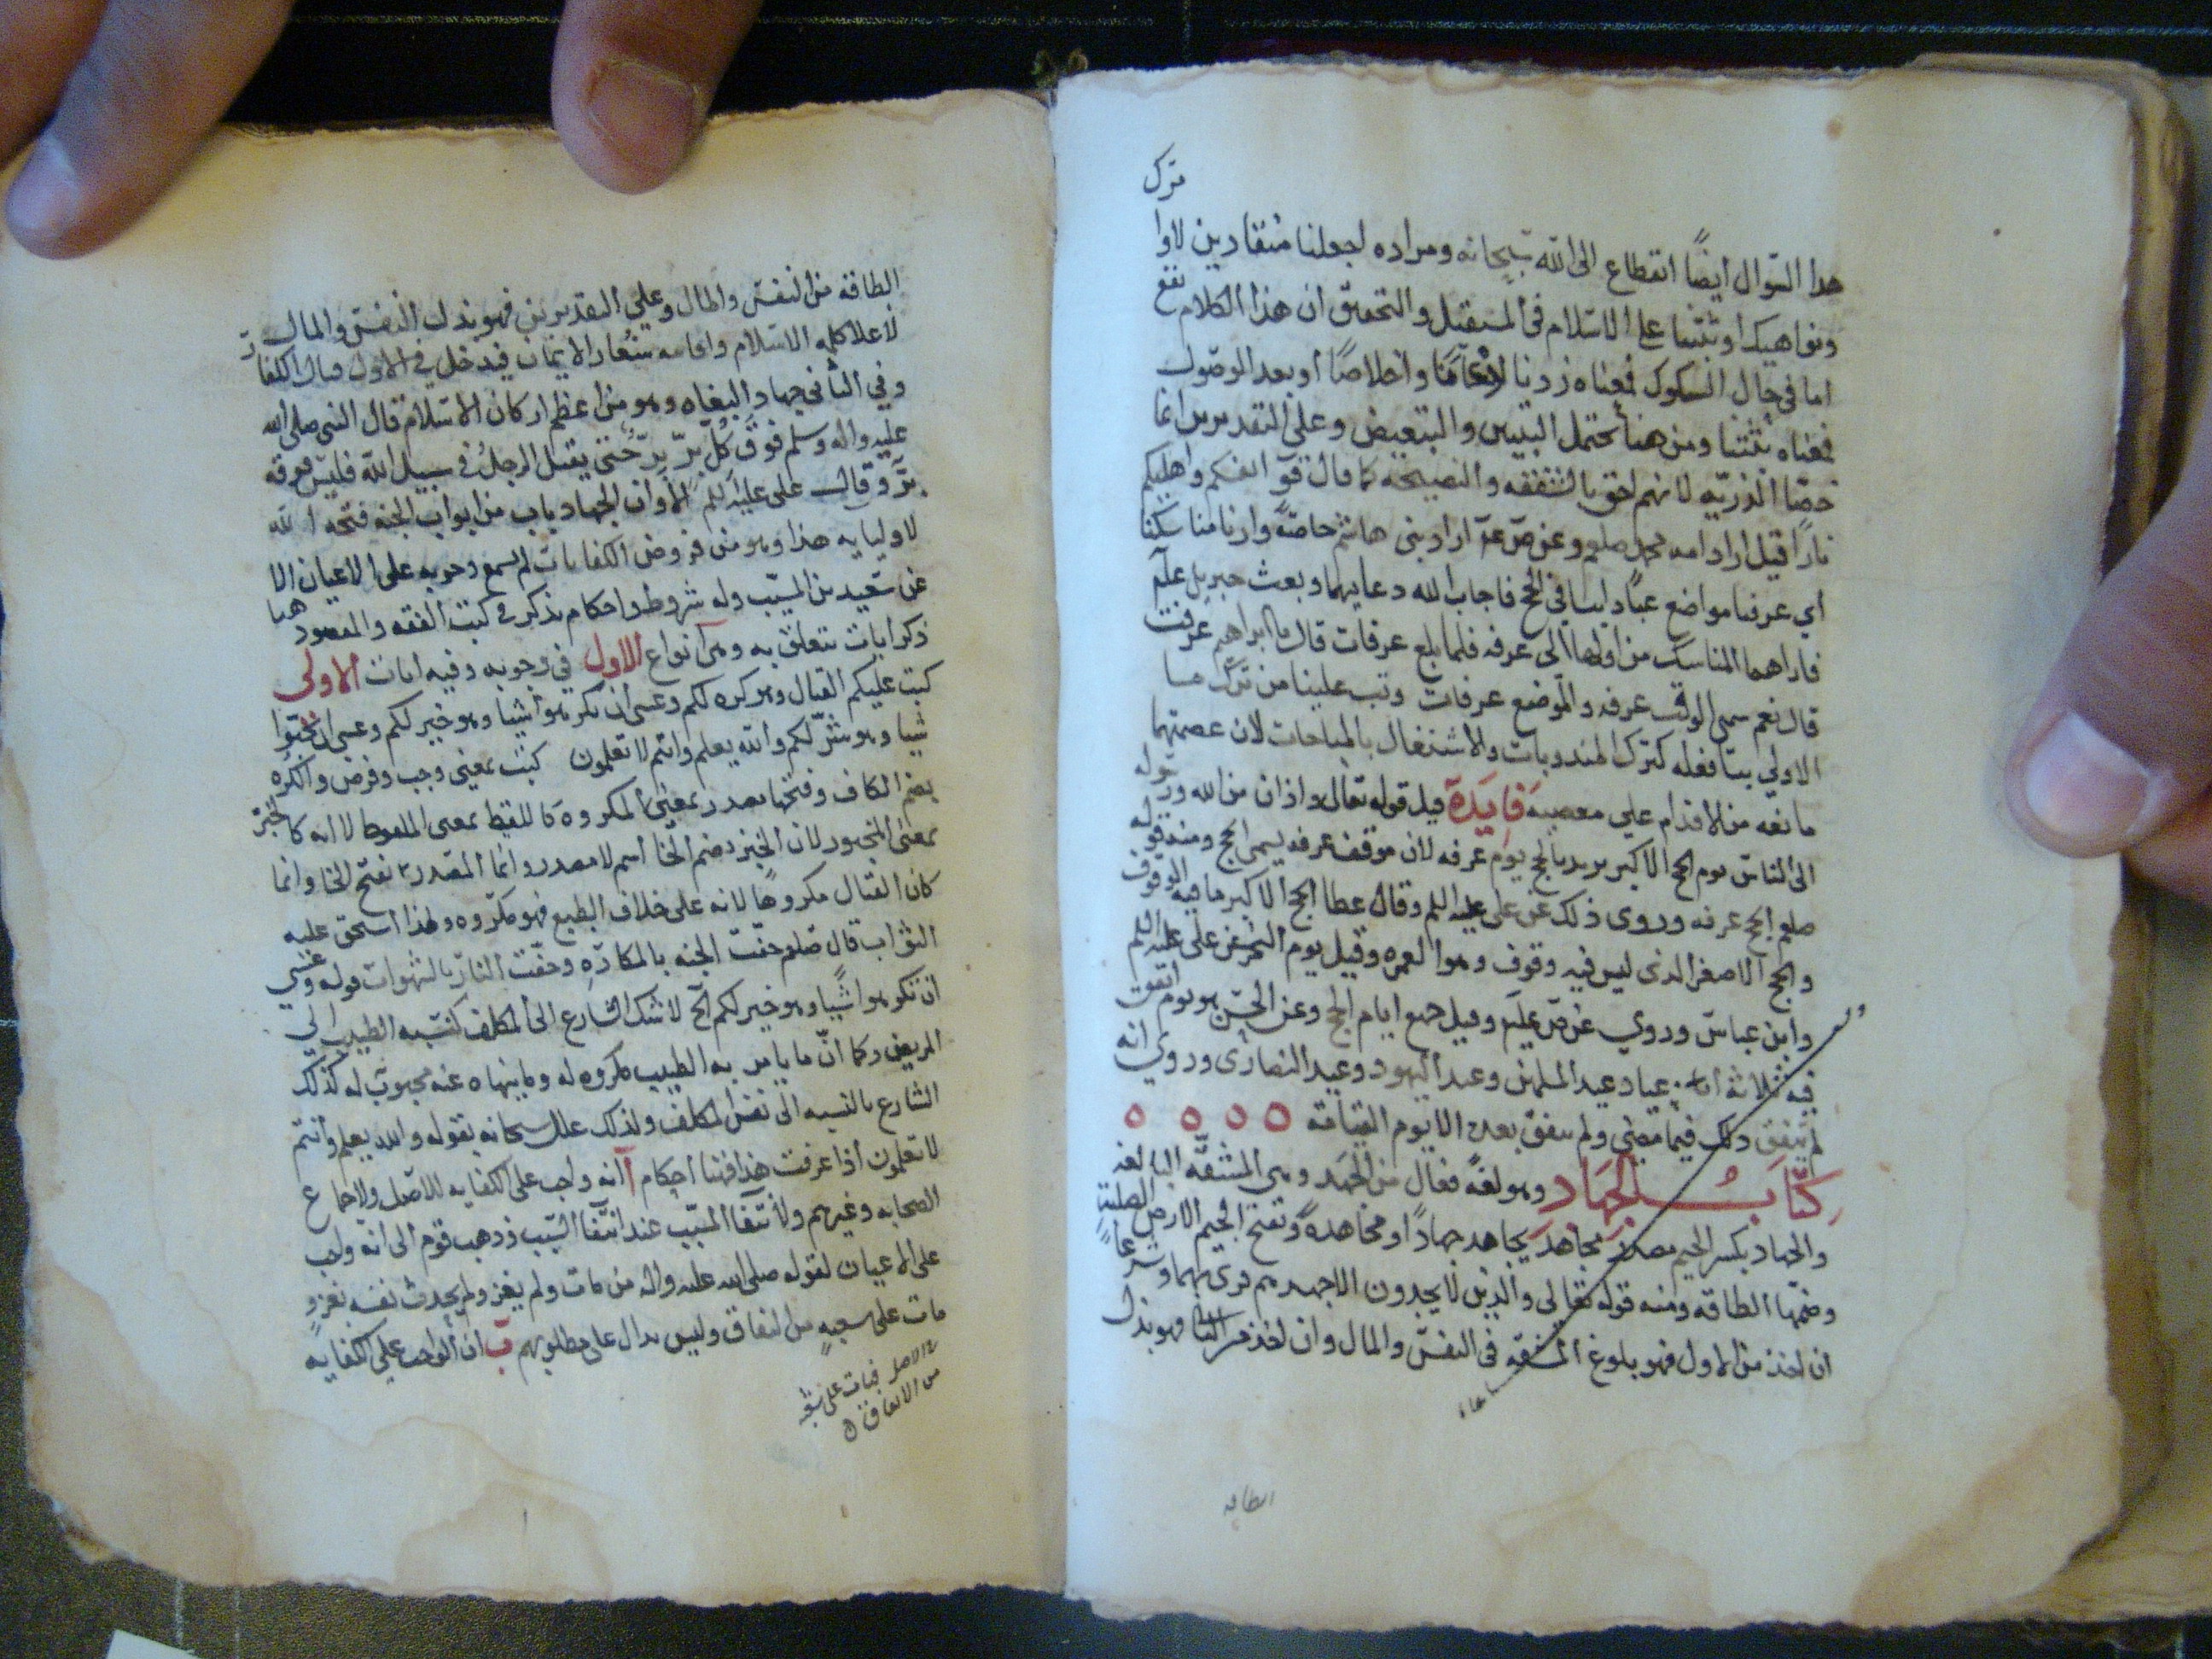 ترك
هذا السؤال أيضًا انقطاع الى الله سبحانه ومراده لجعلنا منقادين لاوا
ونواهيك او ثبتنا على الاسلام في المستقبل والتحقيق ان هذا الكلام نقع
اما في حال السكوك فمعناه زدنا واخلاصًا أو بعد الوصول
فمعناه ثبتنا ومن هنا يحتمل التبيين والتبعيض وعلى التقديرين انما
خصّا الذريّه لانهم احق بالشفقه والنصيحه كما قال قوا انفسكم واهليكم
نارًا قيل اراد امه محمد صلعم وعن ص عم اراد بني هاشم خاصّةً وارنا مناسكنا
أي عرفنا مواضع عبادتنا في الحج فاجاب الله دعايهما وبعث جبريل علم
فاراهما المناسك من اولها الى عرفه فلما بلغ عرفات قال يا ابراهيم عرفت
قال نعم سمى الوقت عرفه والموضع عرفات وتب علينا من ترك ما
الاولي بنا فعله كترك المندوبات والاشتغال بالمباحات لان عصمتهما
مانعه من الاقدام على معصيه فايَدة قيل قوله تعالى واذان من الله ورسوله
الى الناس يوم الحج الاكبر يريد بالحج يوم عرفه لان موقف عرفه يسمى الحج ومنه قوله
صلعم الحج عرفه وروى ذلك عن على عليه السلم وقال عطا الحج الاكبر ما فيه الوقوف
والحج الاصغر الذى ليس فيه وقوف وهوا العمره وقيل يوم النحر عن على عليه السلم
وابن عباس وروي عن ص عليم وقيل جميع ايام الحج وعن الحسن هو يوم اتفق
فيه ثلاثة اعياد عيد المسلمين وعيد اليهود وعيد النصارى وروي انه
لم يتفق ذلك فيما مضى ولم يتفق بعد الا يوم القيامة ٥ ٥ ٥ ٥
كتاب الجهاد وهو لغةً فعال من الجهد وهي المشقّه البالغه
والجهاد بكسر الجيم مصدر جاهدَ يجاهد جهادًا ومجاهدةً وتفتح الجيم الارض الصلبة
وضمّها الطاقه ومنه قوله تعالى والذين لا يجدون الا جهدهم قرئ بهما وشرعاً
ان اخذ من الاول فهو بلوغ المشقه في النفس والمال وان اخذ من الثاني فهو بذل
الطاقه
الطاقه من النفس والمال وعلى التقديرين فهو بذل النفس والمال
لاعلا كلمه الاسلام واقامه شعار الايمان فيدخل في الاول قتال الكفار
وفي الثاني جهاد البغاه وهو من اعظم اركان الاسلام قال النبى صلى الله
عليه واله وسلم فوق كُلّ برّ برّ حتى يقتل الرجلُ في سبيل الله فليس فوقه
برٌّ وقال على عليه السلم الا وان الجهاد باب من ابواب الجنه فتحه الله
لاوليايه هذا وهو من فروض الكفايات لم يسمع وجوبه على الاعيان الا
عن سعيد بن المسيّب وله شروط واحكام تذكر في كتب الفقه والمقصود هنا
ذكر ايات تتعلق به وهي انواع الاول في وجوبه وفيه ايات الاولى
كتب عليكم القتال وهو كره لكم وعسى ان تكرهوا شيا وهو خير لكم وعسى ان تحبّوا
شيا وهو شرّ لكم والله يعلم وانتم لا تعلمون كتب بمعنى وجب وفرض والكره
بضم الكاف وفتحها مصدر بمعنى المكروه كاللفظ بمعنى الملفوظ لا انه كالخبز
بمعنى المخبوز لان الخبز بضم الخا اسم لا مصدر وانما المصدر بفتح الخا وانما
كان القتال مكروهًا لانه على خلاف الطبع فهو مكروه ولهذا استحق عليه
الثواب قال صلعم حفّت الجنه بالمكاره وحفّت النار بالشهوات قوله وعسى
ان تكرهوا شيًا وهو خير لكم الخ لا شك الشارع الى المكلف كنسبه الطبيب الى
المريض وكما انّ ما يامر به الطبيب مكروه له وما ينهاه عنه محبوب له كذلك
الشارع بالنسبه الى نفس المكلف ولذلك علل سبحانه بقوله والله يعلم وانتم
لا تعلمون اذا عرفت هذا فهنا احكام آ انه واجب على الكفايه للاصل والاجماع
الصحابه وغيرهم ولانتفا المسبّب عند انتفا السّبب وذهب قوم الى انه واجب
على الاعيان لقوله صلى الله عليه واله من مات ولم يغز ولم يحدث نفسه بغزوٍ
مات على شعبهٍ من النفاق وليس بدال على مطلوبهم ب ان الواجب على الكفايه
في الاصل